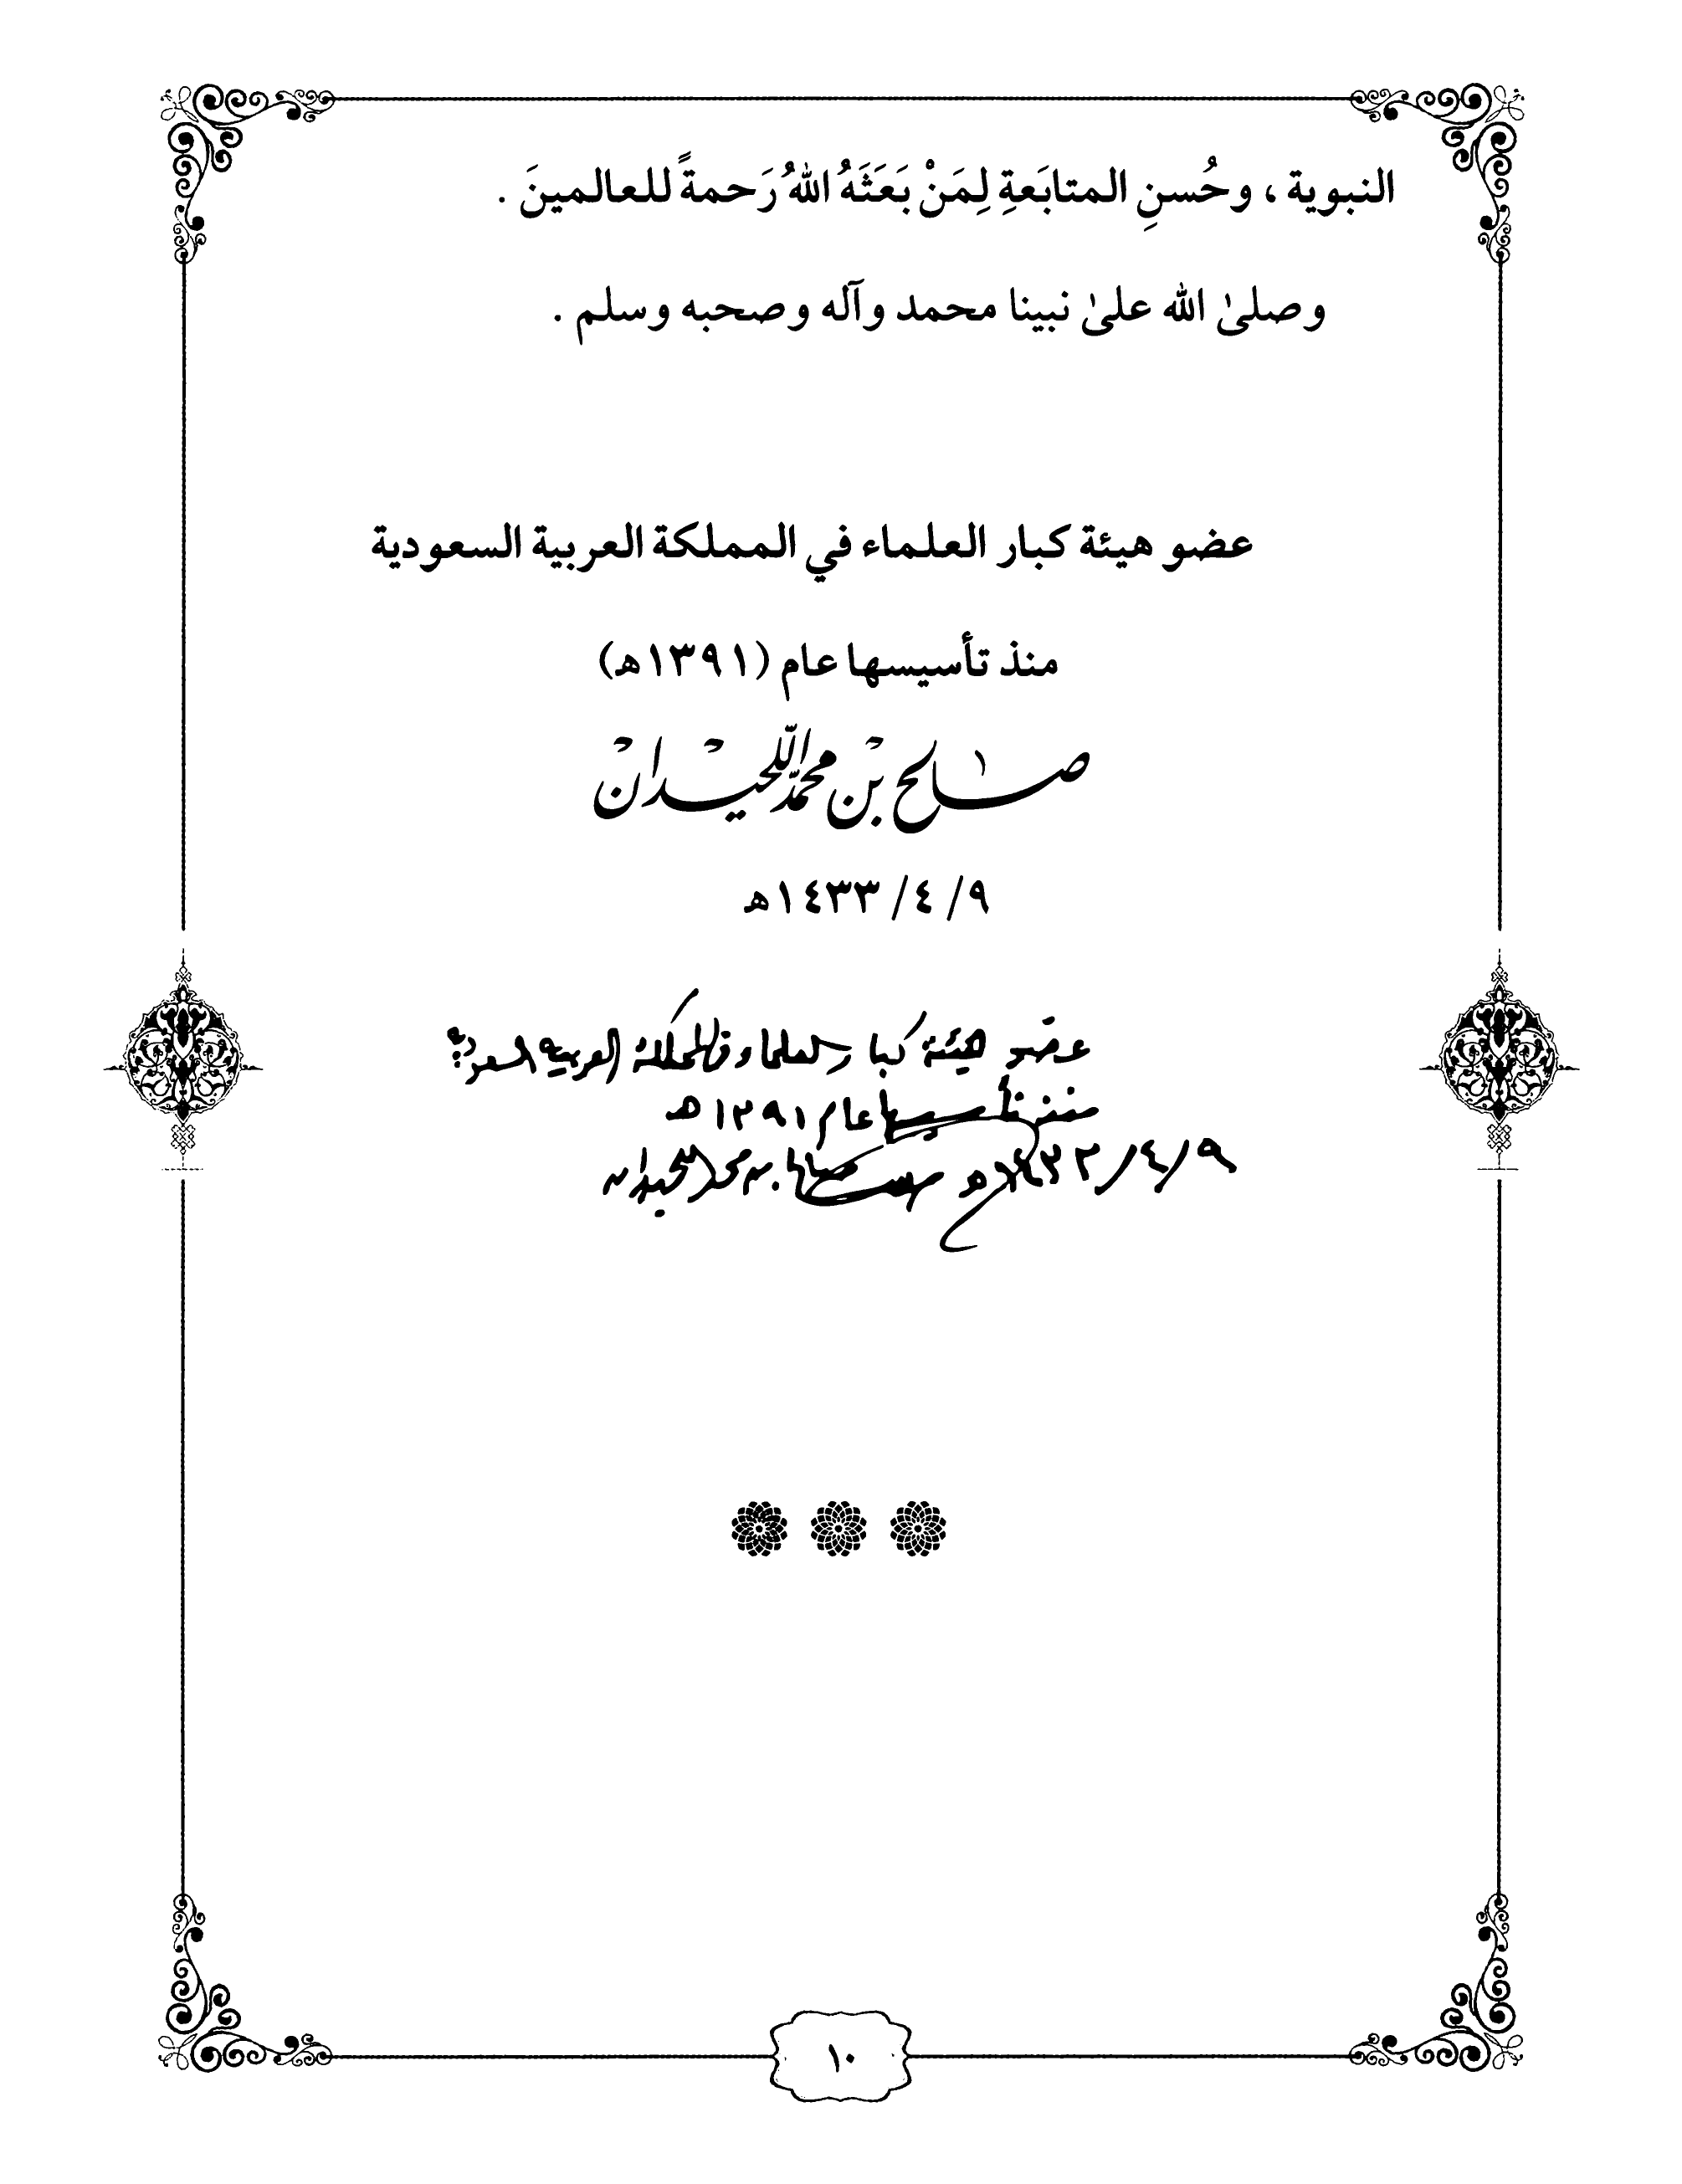 النبوية ، وحُسنِ المتابَعةِ لِمَنْ بَعَثَهُ اللهُ رَحمةً للعالمينَ .
وصلىٰ الله علىٰ نبينا محمد وآله وصحبه وسلم .
عضو هيئة كبار العلماء في المملكة العربية السعودية
منذ تأسيسها عام (١٣٩١هـ)
صالح بن محمد اللحيدان
٩/ ٤/ ١٤٣٣هـ
عضو هيئة كبار العلماء في المملكة العربية السعودية
منذ تأسيسها عام ١٣٩١هـ
٩/٤/١٤٣٣هـ صالح بن محمد اللحيدان
١٠